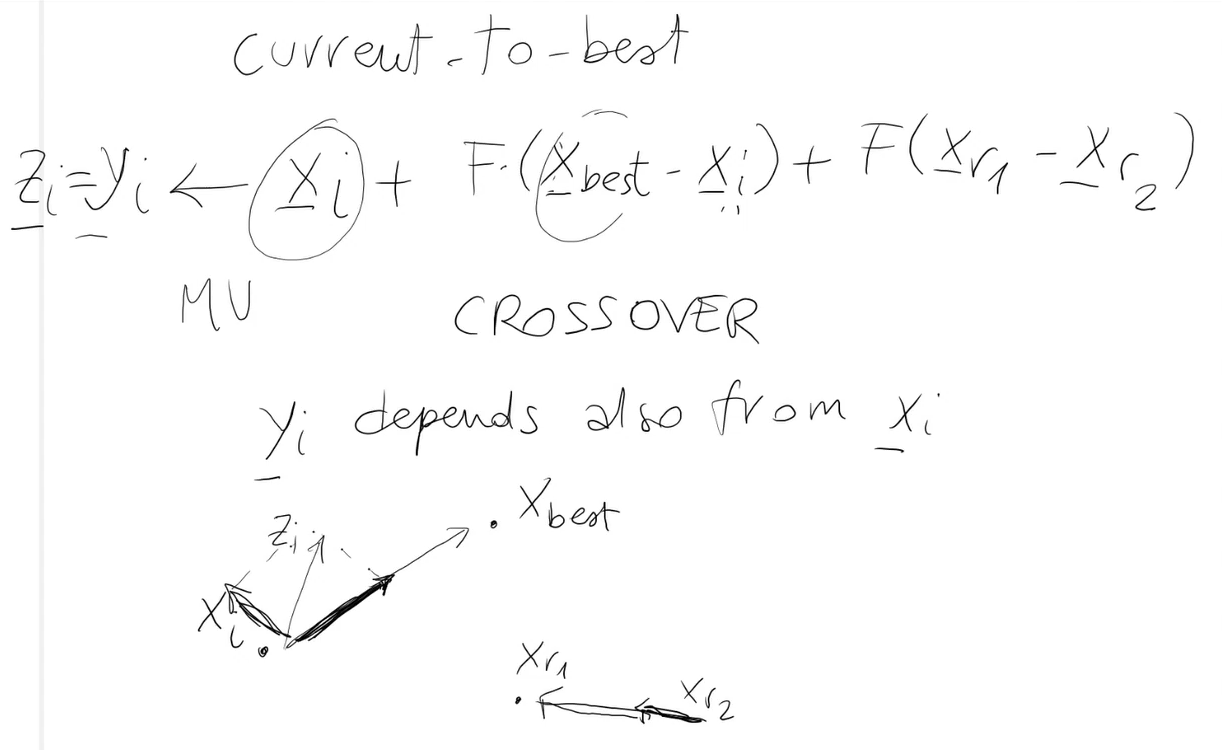 current-to-best
z_i = y_i ← x_i + F·(x_best - x_i) + F(x_r1 - x_r2)
MU
CROSSOVER
y_i depends also from x_i
x_best
z_i
x_i
x_r1
x_r2